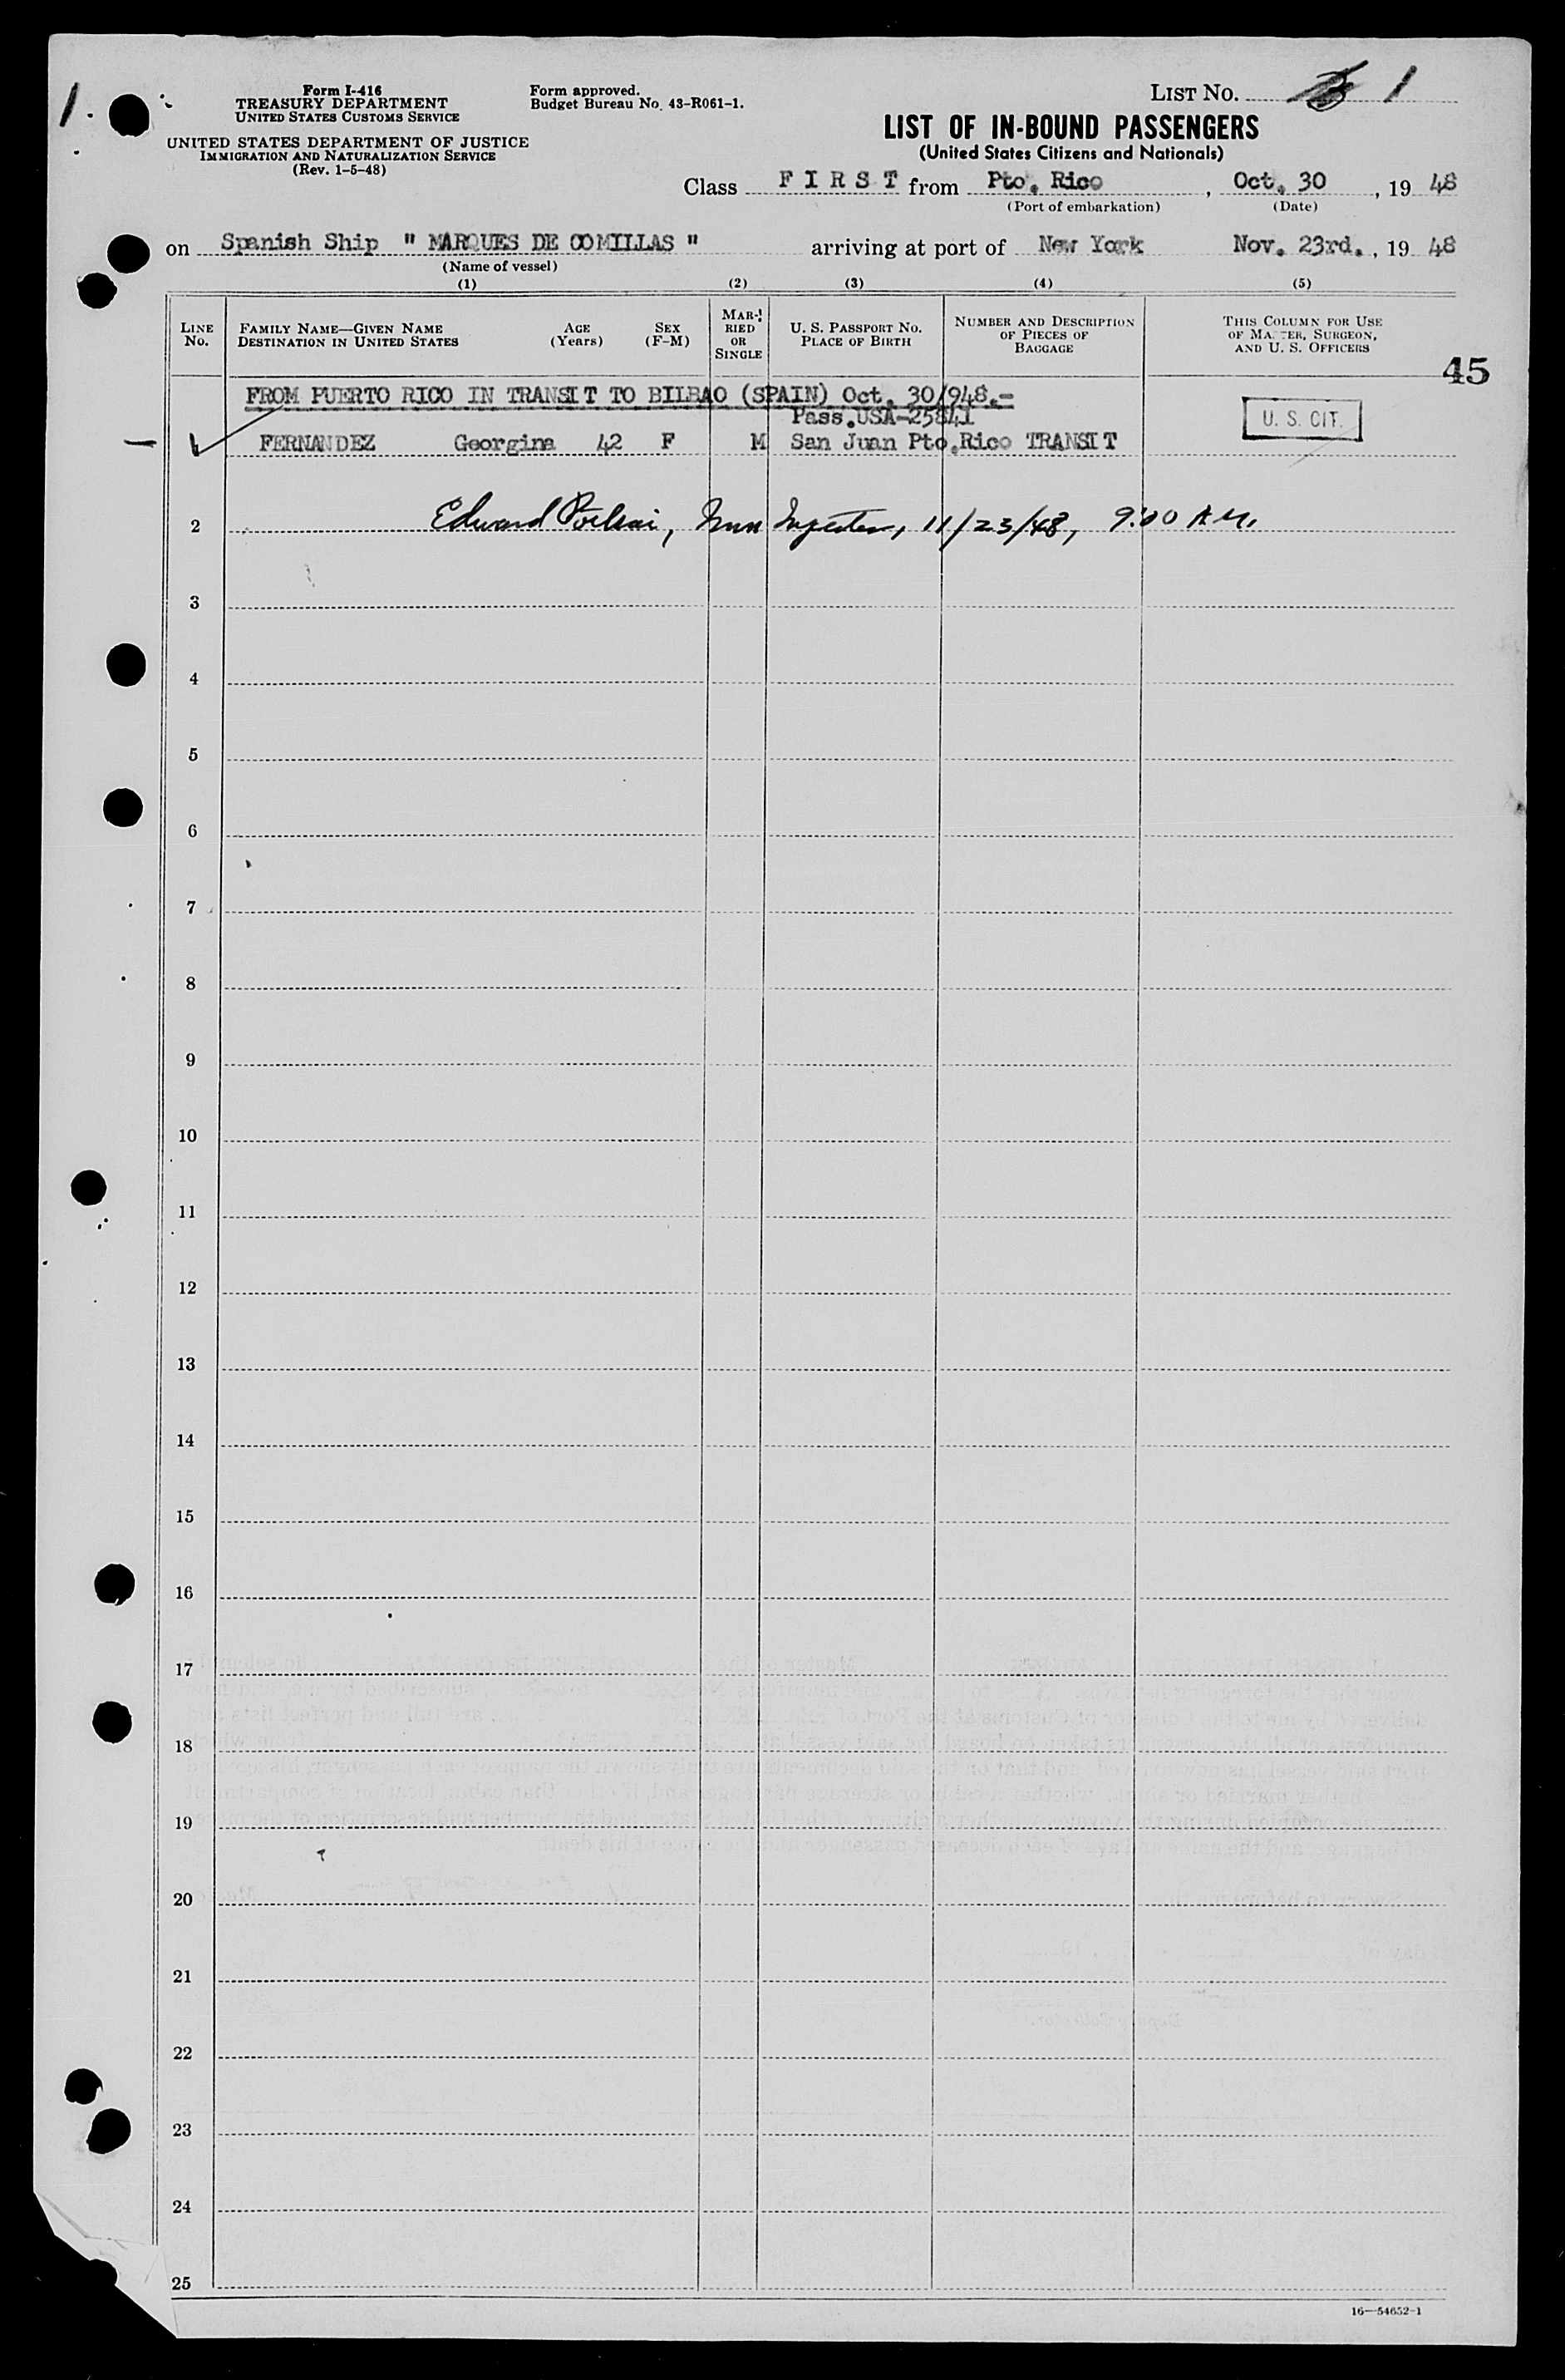 1.
Form I-416
TREASURY DEPARTMENT
UNITED STATES CUSTOMS SERVICE
UNITED STATES DEPARTMENT OF JUSTICE
IMMIGRATION AND NATURALIZATION SERVICE
(Rev. 1-5-48)
Form approved.
Budget Bureau No. 43-R061-1.
LIST NO. 1
LIST OF IN-BOUND PASSENGERS
(United States Citizens and Nationals)
Class FIRST from Pto. Rico, Oct. 30, 19 48
(Port of embarkation) (Date)
on Spanish Ship " MARQUES DE COMILLAS " arriving at port of New York Nov. 23rd., 19 48
(Name of vessel)
(1) (2) (3) (4) (5)
LINE NO.
FAMILY NAME—GIVEN NAME
DESTINATION IN UNITED STATES
AGE (Years)
SEX (F-M)
MARRIED OR SINGLE
U. S. PASSPORT NO.
PLACE OF BIRTH
NUMBER AND DESCRIPTION OF PIECES OF BAGGAGE
THIS COLUMN FOR USE OF MASTER, SURGEON, AND U. S. OFFICERS
45
FROM PUERTO RICO IN TRANSIT TO BILBAO (SPAIN) Oct. 30/948.-
Pass.USA-25841
FERNANDEZ Georgina 42 F M San Juan Pto.Rico TRANSIT
U. S. CIT.
2 Edward, 11/23/48, 9:00 A.M.
3
4
5
6
7
8
9
10
11
12
13
14
15
16
17
18
19
20
21
22
23
24
25
16—54652-1